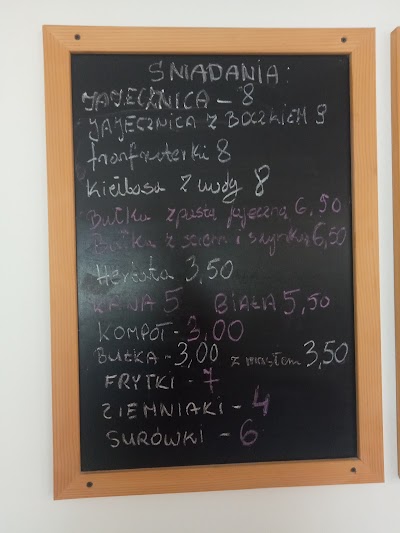 ŚNIADANIA:
JAJECZNICA - 8
JAJECZNICA Z BOCZKIEM 9
frankfuterki 8
Kiełbasa z wody 8
Bułka z pastą jajeczną 6,50
Bułka z serem i szynką 6,50
Herbata 3,50
KAWA 5 BIAŁA 5,50
KOMPOT - 3,00
BUŁKA - 3,00 z masłem 3,50
FRYTKI - 7
ZIEMNIAKI - 4
SURÓWKI - 6